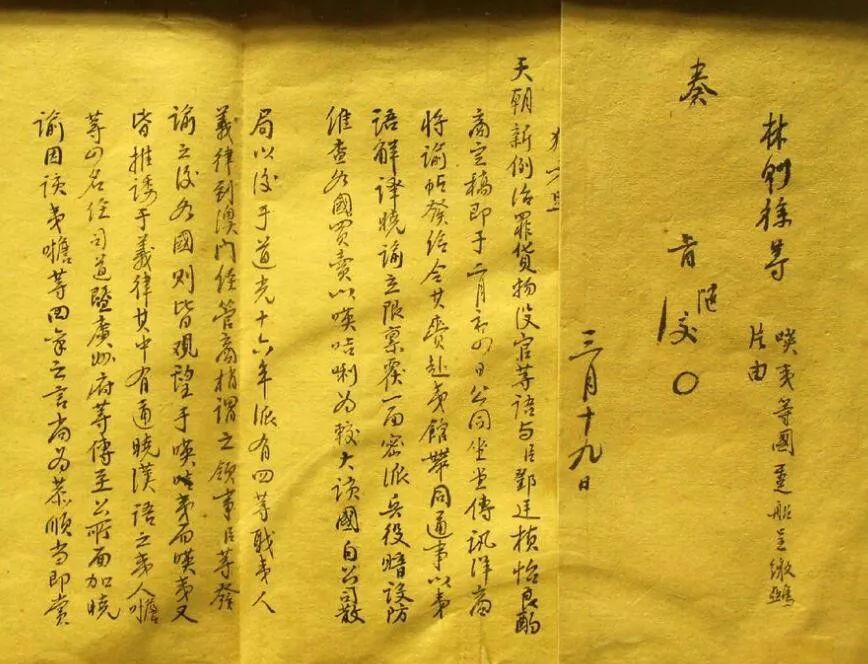 林則徐等
𠸄夷等國躉船呈繳鴉
片由
奏
旨
三月十九日
天朝新例治罪貨物没官等語與臣鄧廷楨怡良酌
商定稿即于二月初四日公同坐堂傳訊洋商
將諭帖發給令其賫赴夷館帶同通事以夷
語解譯曉諭立限禀覆一面密派兵役暗設防
維查各國買賣以𠸄咭唎為較大該國自公司散
局以後于道光十六年派有四等職夷人
義律到澳門經管商梢謂之領事臣等發
諭之後各國則皆觀望于𠸄咭夷而𠸄夷又
皆推諉于義律其中有通曉漢語之夷人噡
等四名經司道暨廣州府等傳至公所面加曉
諭因該夷噡等回稟之言尚為恭順當即賞